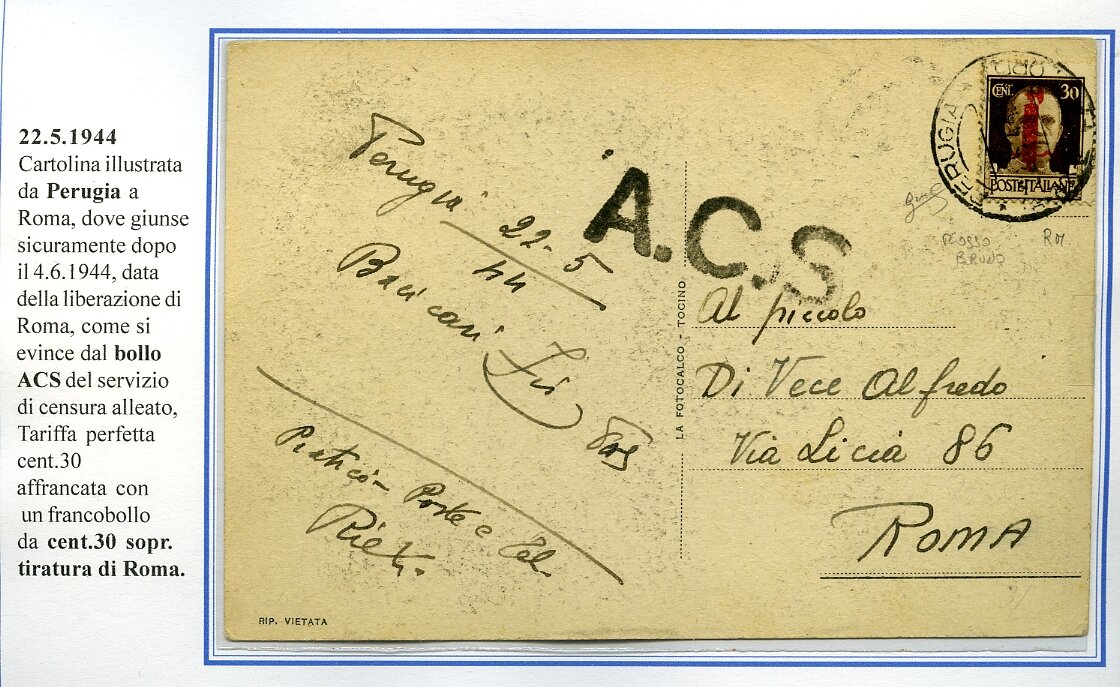 22.5.1944
Cartolina illustrata
da Perugia a
Roma, dove giunse
sicuramente dopo
il 4.6.1944, data
della liberazione di
Roma, come si
evince dal bollo
ACS del servizio
di censura alleato,
Tariffa perfetta
cent.30
affrancata con
un francobollo
da cent.30 sopr.
tiratura di Roma.
Perugia 22-5
44
Baci cari
Poste e Tel.
Rieti
RIP. VIETATA
A.C.S
LA FOTOCALCO - TOCINO
PERUGIA
CENT. 30
POSTE ITALIANE
ROSSO
BRUNO
RM
Al piccolo
Di Vece Alfredo
Via Licia 86
ROMA